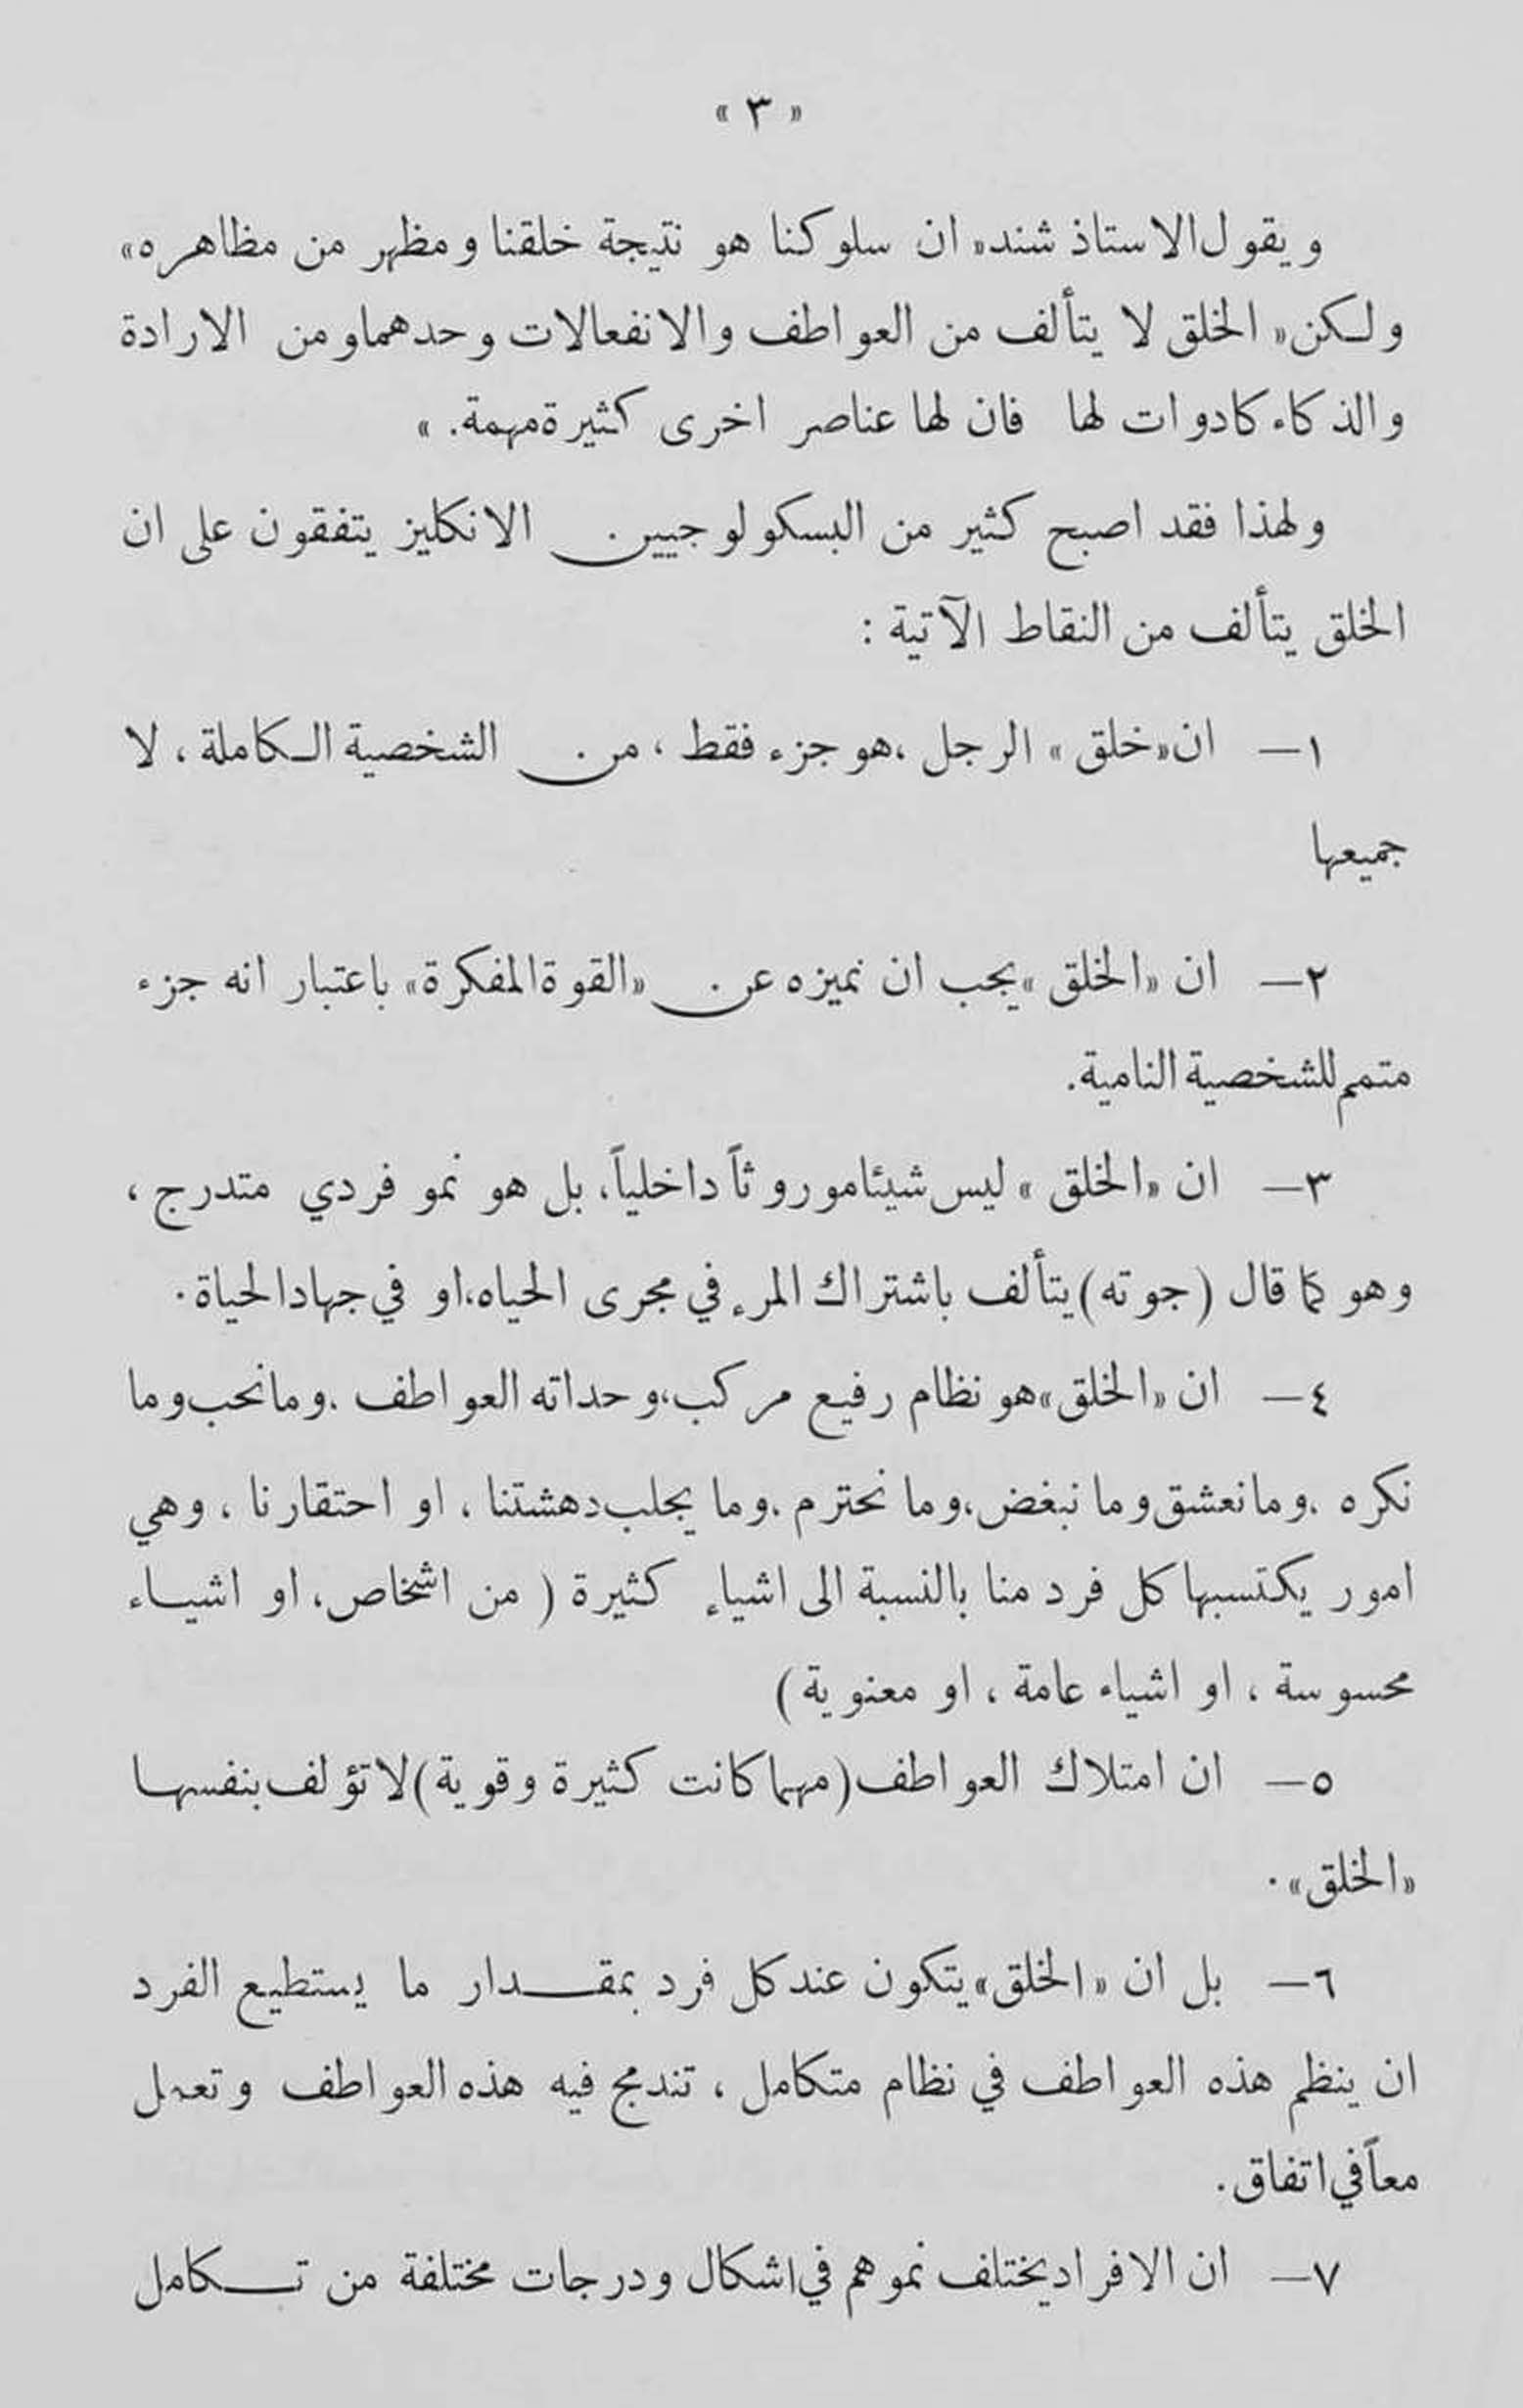 « ٣ »
ويقول الاستاذ شند« ان سلوكنا هو نتيجة خلقنا ومظهر من مظاهره»
ولكن« الخلق لا يتألف من العواطف والانفعالات وحدهما ومن الارادة
والذكاء كادوات لها فان لها عناصر اخرى كثيرة مهمة. »
ولهذا فقد اصبح كثير من البسكولوجيين الانكليز يتفقون على ان
الخلق يتألف من النقاط الآتية :
١— ان«خلق» الرجل ،هو جزء فقط ، من الشخصية الكاملة ، لا
جميعها
٢— ان «الخلق» يجب ان نميزه عن «القوة المفكرة» باعتبار انه جزء
متمم للشخصية النامية.
٣— ان «الخلق» ليس شيئا موروثاً داخلياً، بل هو نمو فردي متدرج ،
وهو كما قال (جوته) يتألف باشتراك المرء في مجرى الحياه،او في جهاد الحياة.
٤— ان «الخلق» هو نظام رفيع مركب،وحداته العواطف .وما نحب وما
نكره .وما نعشق وما نبغض،وما نحترم .وما يجلب دهشتنا ، او احتقارنا ، وهي
امور يكتسبها كل فرد منا بالنسبة الى اشياء كثيرة ( من اشخاص، او اشياء
محسوسة ، او اشياء عامة ، او معنوية )
٥— ان امتلاك العواطف (مهما كانت كثيرة وقوية) لا تؤلف بنفسها
«الخلق».
٦— بل ان «الخلق» يتكون عند كل فرد بمقدار ما يستطيع الفرد
ان ينظم هذه العواطف في نظام متكامل ، تندمج فيه هذه العواطف وتعمل
معاً في اتفاق.
٧— ان الافراد يختلف نموهم في اشكال ودرجات مختلفة من تكامل